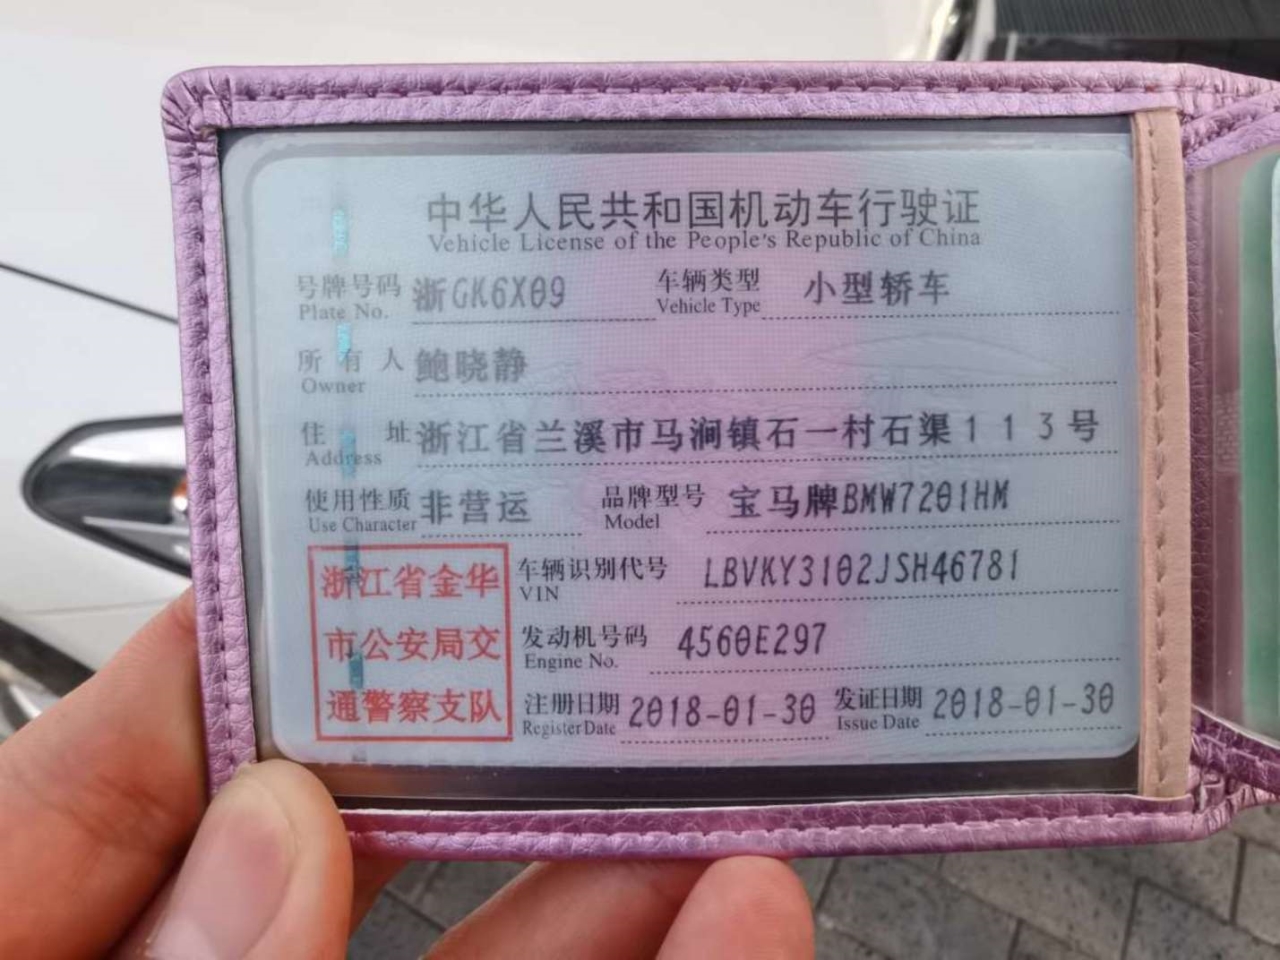 中华人民共和国机动车行驶证
Vehicle License of the People's Republic of China
号牌号码 浙GK6X09 车辆类型 小型轿车
Plate No. Vehicle Type
所有人 鲍晓静
Owner
住址 浙江省兰溪市马涧镇石一村石渠113号
Address
使用性质 非营运 品牌型号 宝马牌BMW7201HM
Use Character Model
车辆识别代号 LBVKY3102JSH46781
VIN
发动机号码 4560E297
Engine No.
注册日期 2018-01-30 发证日期 2018-01-30
Register Date Issue Date
浙江省金华
市公安局交
通警察支队